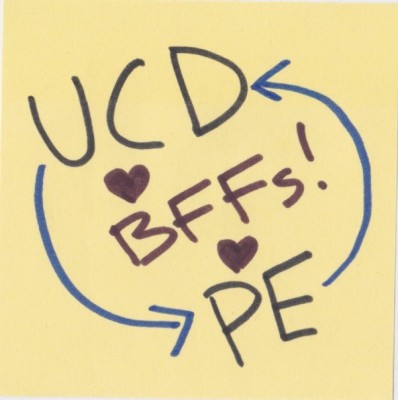 UCD
BFFs!
PE